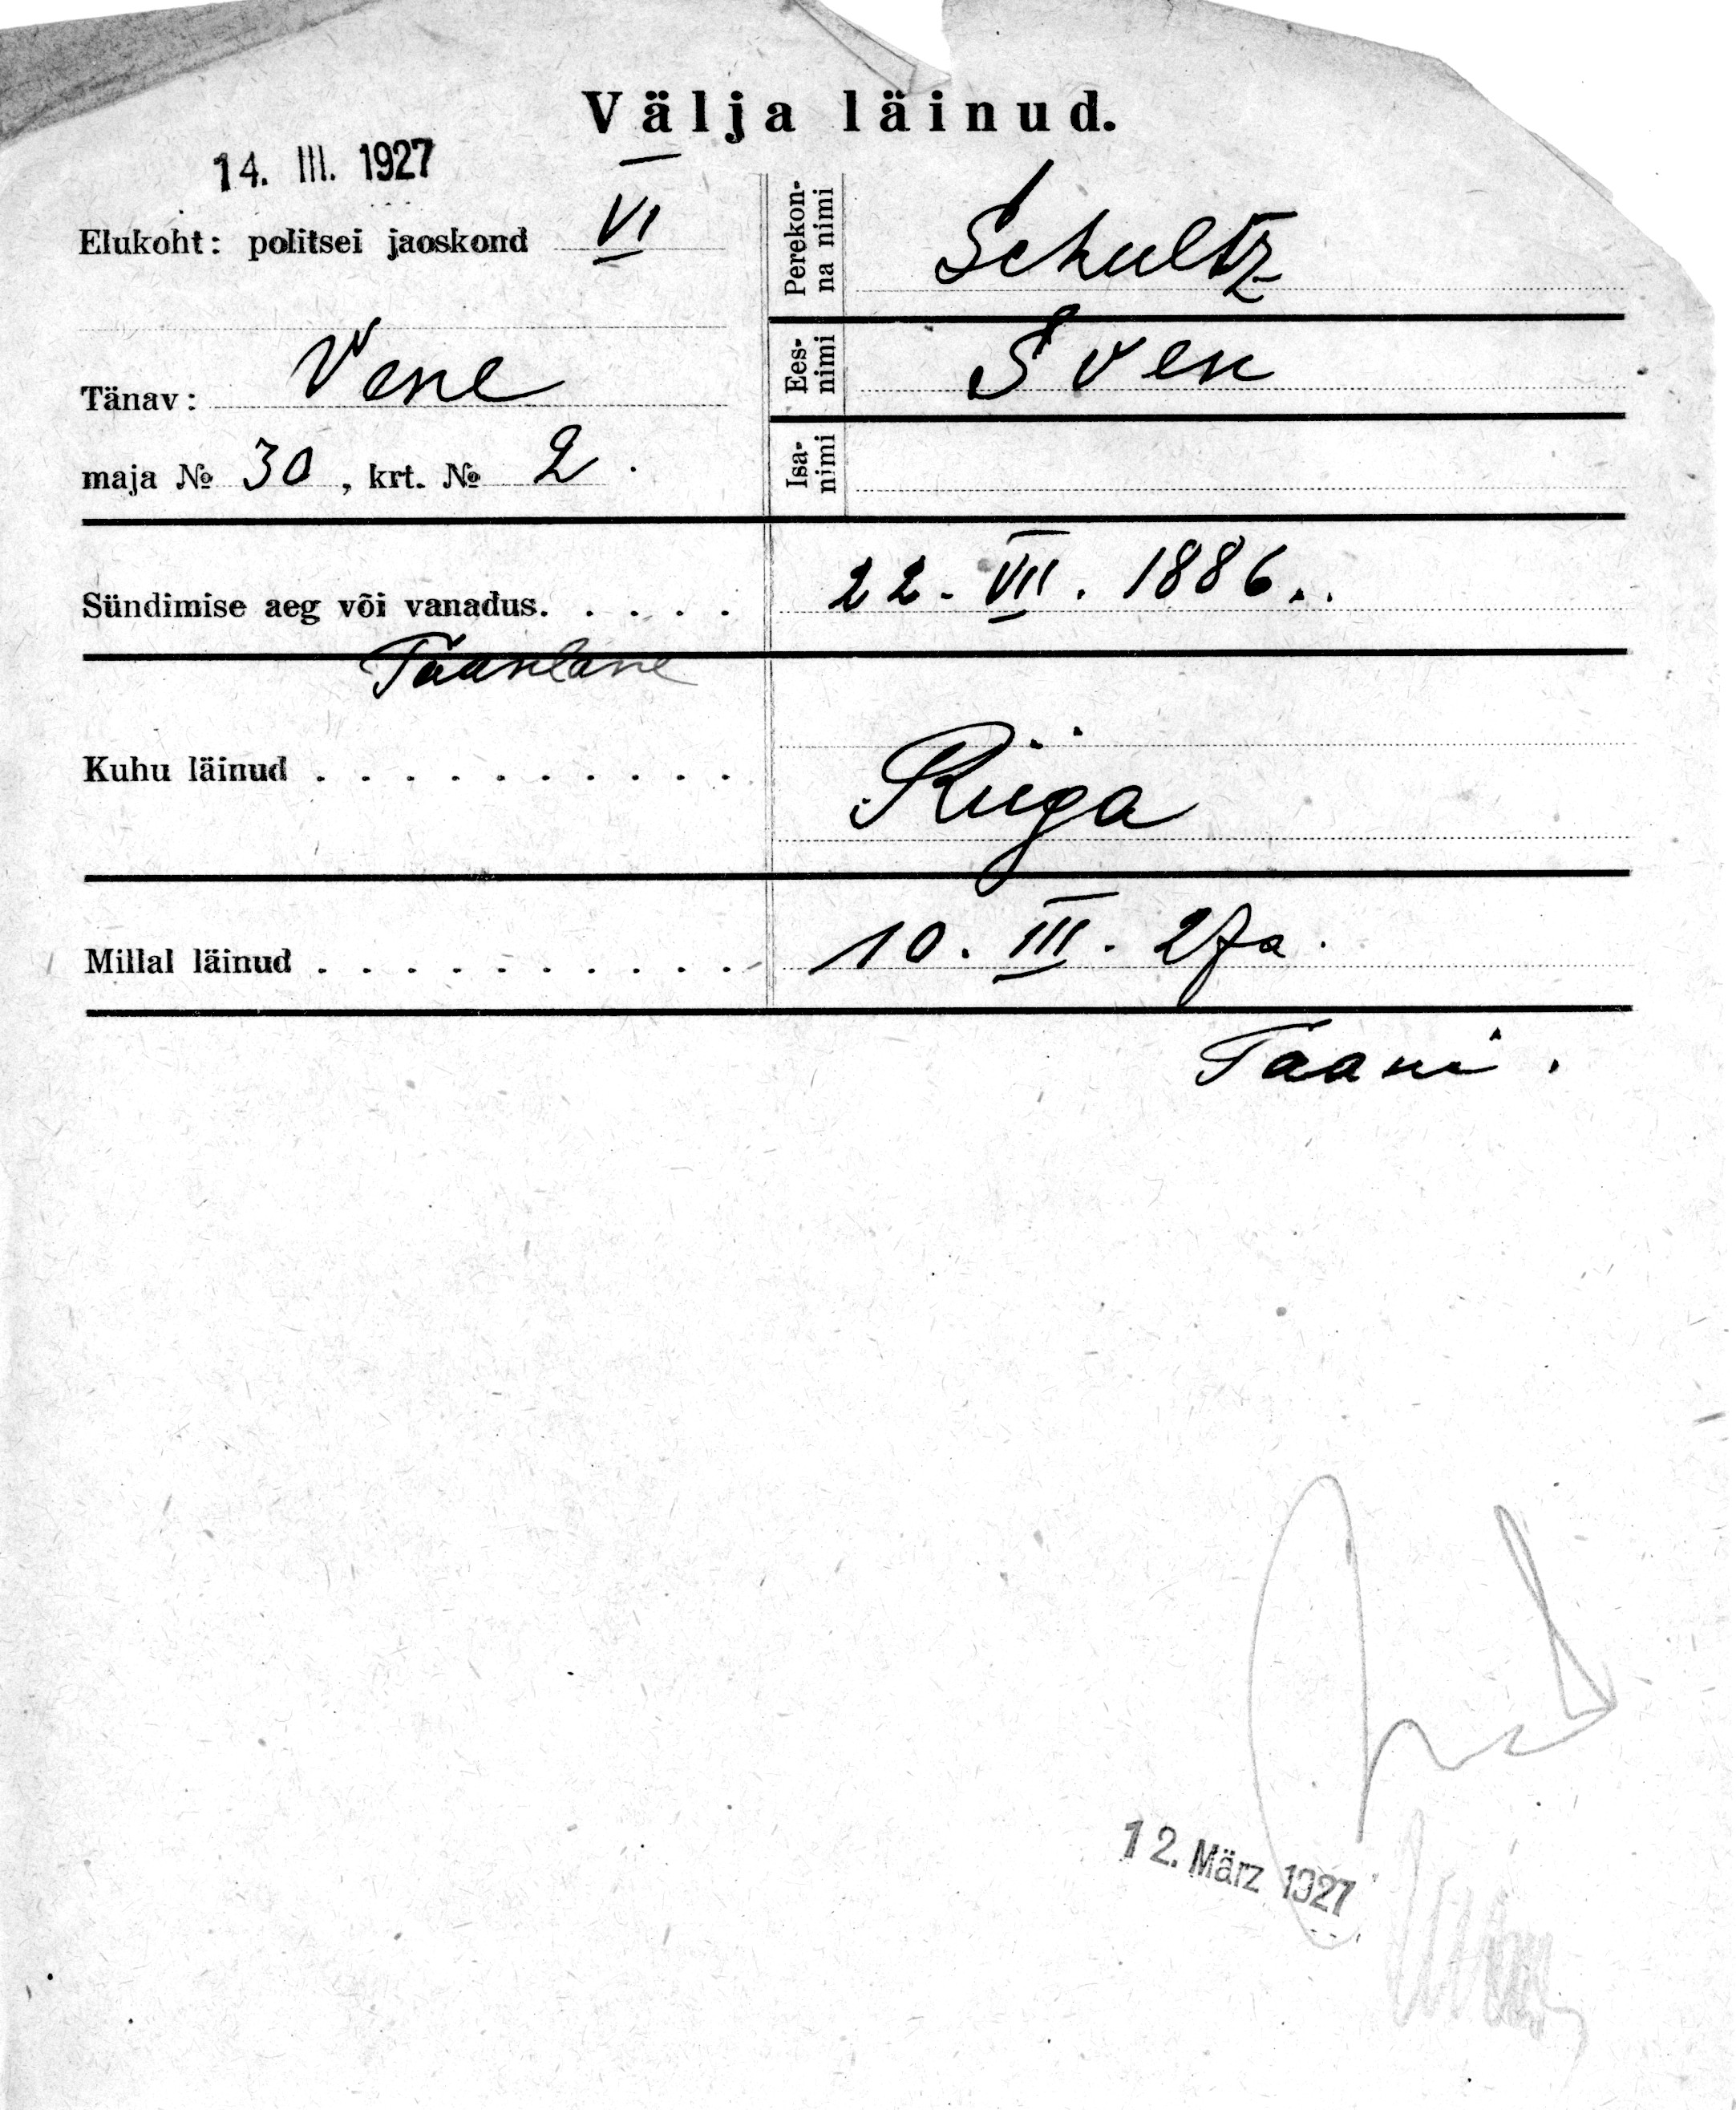 Välja läinud.
14. III. 1927
Elukoht: politsei jaoskond VI
Tänav: Vene
maja № 30, krt. № 2.
Perekon-
na nimi
Schultz
Ees-
nimi
Sven
Isa-
nimi
Sündimise aeg või vanadus. . . . . 22. VII. 1886.
Taanlane
Kuhu läinud . . . . . . . . . . Riiga
Millal läinud . . . . . . . . . . 10. III. 27 a.
Taani.
12. März 1927